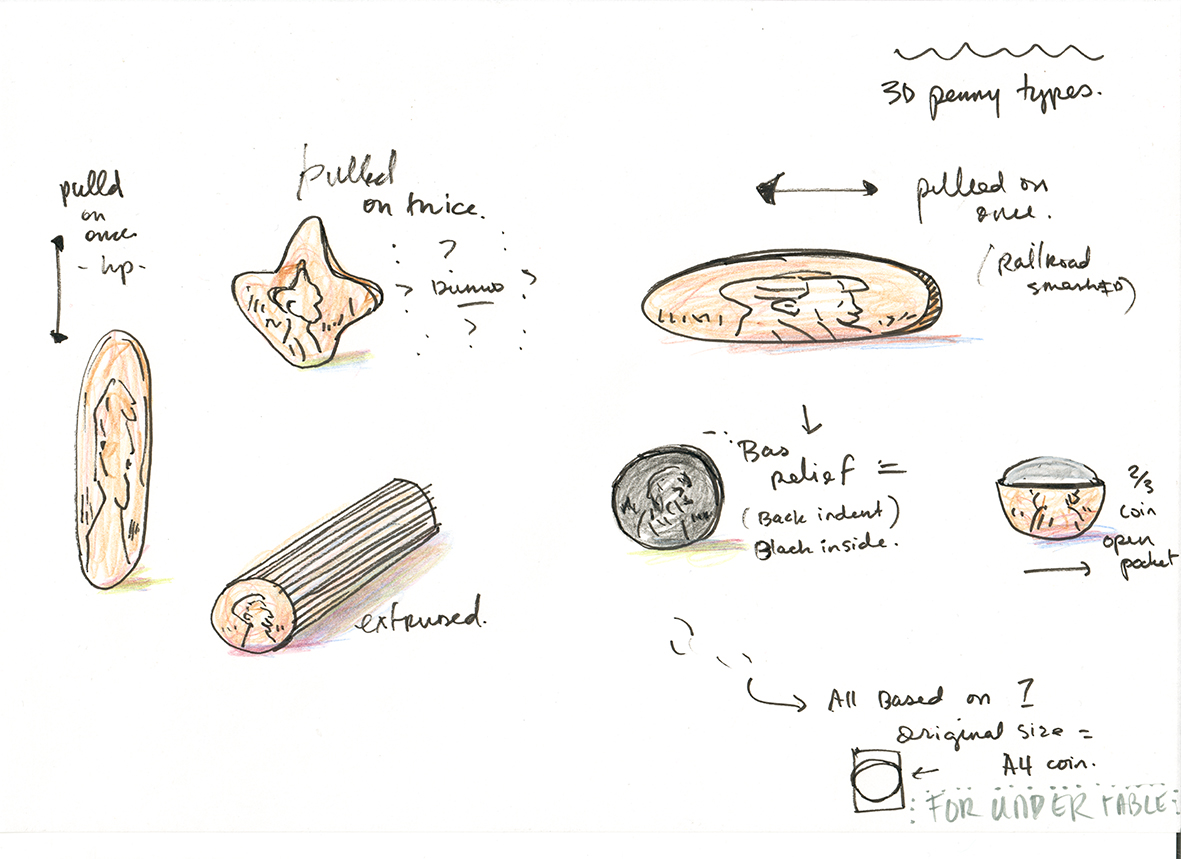 3D penny types.
pulld
on
once
- up -
pulled
on twice.
?
> Dunno ?
?
pulled on
once.
(Railroad
smashed)
Bas
relief =
(Back indent)
Black inside.
2/3
coin
open
pocket
extrused.
All Based on 1
original size =
A4 coin.
FOR UNDER TABLE